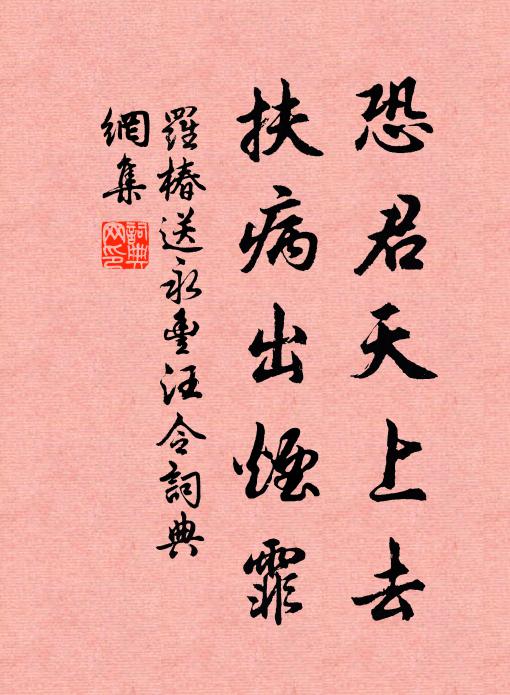 恐君天上去
扶病出煙霏
羅椿送永豐汪令詞典
網集
詞典
网印